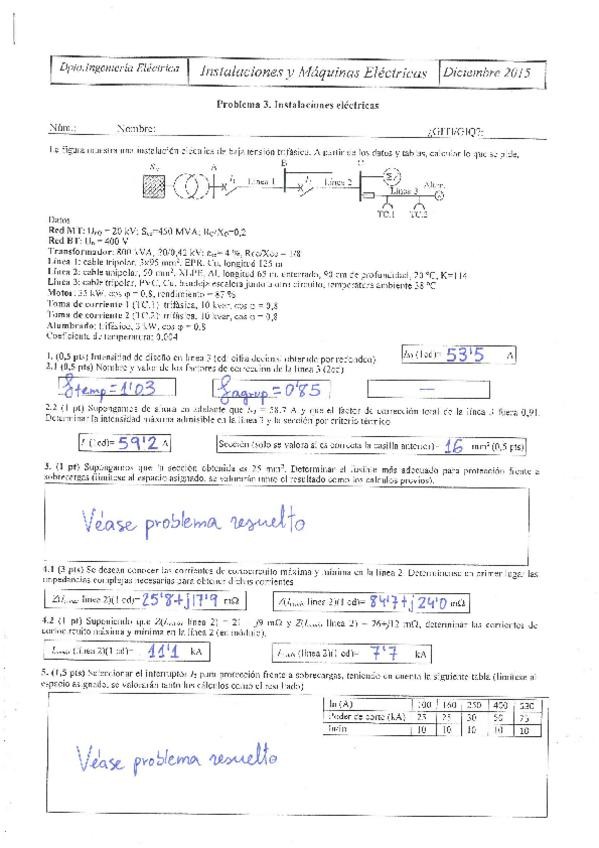 Dpto.Ingeniería Eléctrica
Instalaciones y Máquinas Eléctricas
Diciembre 2015
Problema 3. Instalaciones eléctricas
Núm.: Nombre: ¿GITI/GIQ?:
La figura muestra una instalación eléctrica de baja tensión trifásica. A partir de los datos y tablas, calcular lo que se pide.
A I1 Línea 1 B Línea 2 C
Línea 3 Alum.
TC.1 TC.2
Datos
Red MT: = 20 kV; =450 MVA; =0,2
Red BT: = 400 V
Transformador: 800 kVA, 20/0,42 kV; = 4 %, = 1/8
Línea 1: cable tripolar, 3x95 mm², EPR, Cu, longitud 125 m
Línea 2: cable unipolar, 50 mm², XLPE, Al, longitud 65 m, enterrado, 90 cm de profundidad, 20 °C, K=114
Línea 3: cable tripolar, PVC, Cu, bandeja escalera junto a otro circuito, temperatura ambiente 38 °C
Motor: 35 kW, cos φ = 0,8, rendimiento = 87 %
Toma de corriente 1 (TC.1): trifásica, 10 kW, cos φ = 0,8
Toma de corriente 2 (TC.2): trifásica, 10 kW, cos φ = 0,8
Alumbrado: trifásico, kW, cos φ = 0,8
Coeficiente de temperatura: 0,004
1. (0,5 pts) Intensidad de diseño en línea 3 (1cd: cifra decimal obtenida por redondeo)
(1cd)= 53'5 A
2.1 (0,5 pts) Nombre y valor de los factores de corrección de la línea 3 (2cd)
ftemp=1'03 fagrup=0'85 —
2.2 (1 pt) Supongamos de ahora en adelante que = 58.7 A y que el factor de corrección total de la línea 3 fuera 0,91.
Determinar la intensidad máxima admisible en la línea 3 y la sección por criterio térmico
(1cd)= 59'2 A Sección (solo se valora si es correcta la casilla anterior)= 16 mm² (0,5 pts)
3. (1 pt) Supongamos que la sección obtenida es 25 mm². Determinar el fusible más adecuado para protección frente a
sobrecargas (limítese al espacio asignado, se valorarán tanto el resultado como los cálculos previos).
Véase problema resuelto
4.1 (3 pts) Se desean conocer las corrientes de cortocircuito máxima y mínima en la línea 2. Determínense en primer lugar las
impedancias complejas necesarias para obtener dichas corrientes
línea 2)(1 cd)= 25'8+j17'9 mΩ línea 2)(1 cd)= 84'7+j24'0 mΩ
4.2 (1 pt) Suponiendo que línea 2) = 21 j9 mΩ y línea 2) = 26+j12 mΩ, determinar las corrientes de
cortocircuito máxima y mínima en la línea 2 (en módulo).
(línea 2)(1cd)= 11'1 kA (línea 2)(1 cd)= 7'7 kA
5. (1,5 pts) Seleccionar el interruptor para protección frente a sobrecargas, teniendo en cuenta la siguiente tabla (limítese al
espacio asignado, se valorarán tanto los cálculos como el resultado)
In (A) 100 160 250 400 630
Poder de corte (kA) 25 25 30 50 75
10 10 10 10 10
Véase problema resuelto